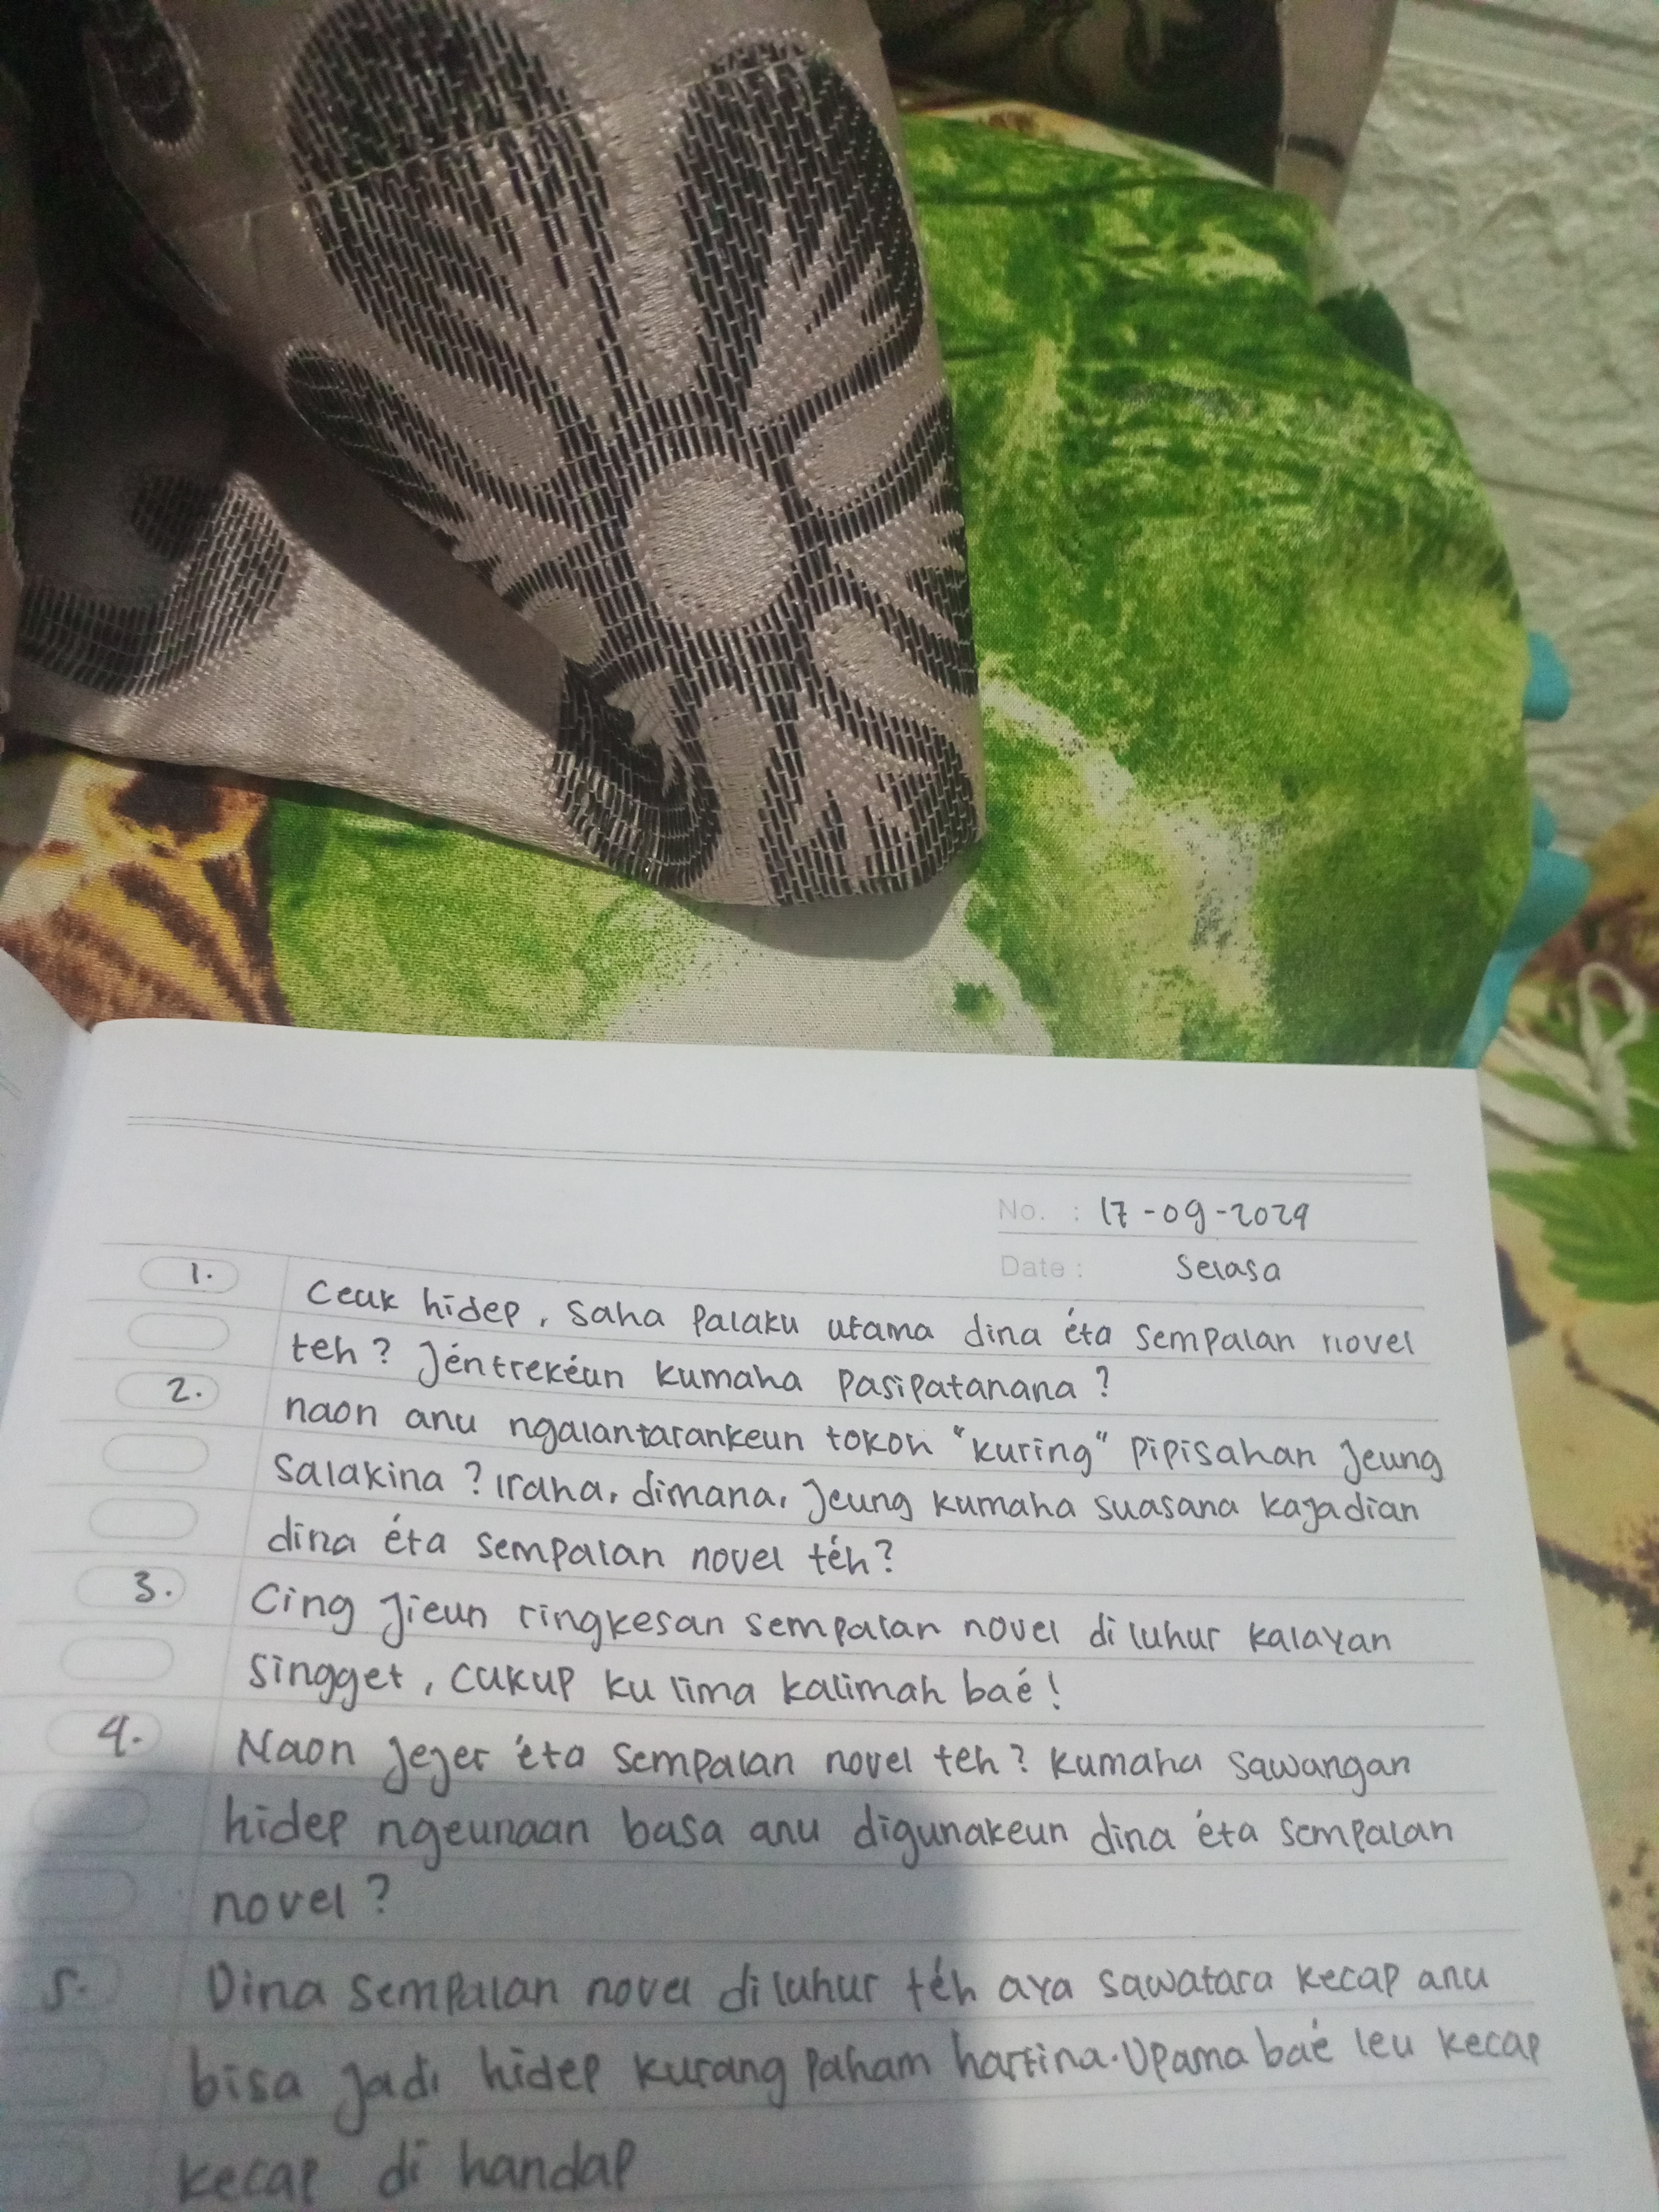 No. : 17-09-2024
Date : Selasa
1. Ceuk hidep, saha palaku utama dina éta sempalan novel
teh? Jéntrekéun kumaha pasipatanana?
2. naon anu ngalantarankeun tokoh "kuring" pipisahan jeung
salakina? iraha, dimana, jeung kumaha suasana kajadian
dina éta sempalan novel téh?
3. Cing jieun ringkesan sempalan novel di luhur kalayan
singget, cukup ku lima kalimah baé!
4. Naon jejer éta sempalan novel teh? kumaha sawangan
hidep ngeunaan basa anu digunakeun dina éta sempalan
novel?
5. Dina sempalan novel di luhur téh aya sawatara kecap anu
bisa jadi hidep kurang paham hartina. Upama baé leu kecap
kecap di handap